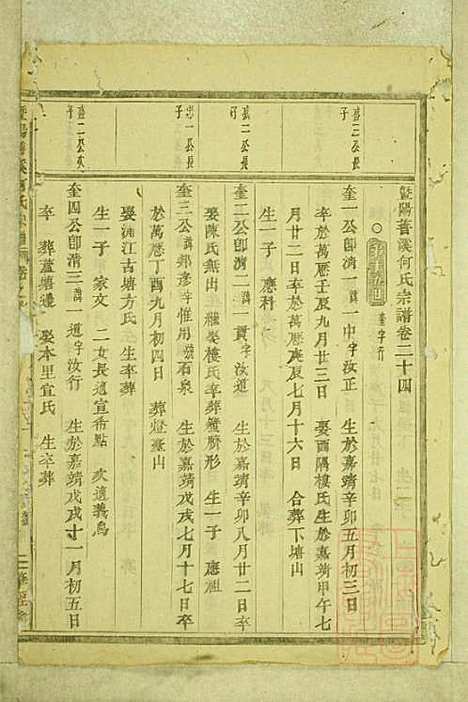 暨陽菩溪何氏宗譜卷二十四
奎字行
盛三公長子
奎一公卽清一諱一中字汝正 生於嘉靖辛卯五月初三日
卒於萬厯壬辰九月廿三日 娶酉隅樓氏生於嘉靖甲午七
月廿二日卒於萬厯庚辰七月十六日 合葬下塘山
生一子 應科
盛二公長子
奎二公卽清二諱一貫字汝道 生於嘉靖辛卯八月廿二日卒
娶陳氏無出 繼娶樓氏卒葬蟹臍形 生一子 應祖
忠一公長子
奎三公諱邦彥字惟用號石泉 生於嘉靖戊戌七月十七日卒
於萬厯丁酉九月初四日 葬燈臺山
娶浦江古塘方氏 生卒葬
生一子 家文 二女長適宣希點 次適義烏
盛二公次子
奎四公卽清三諱一道字汝行 生於嘉靖戊戌十一月初五日
卒 葬蓋塘邊 娶本里宣氏 生卒葬